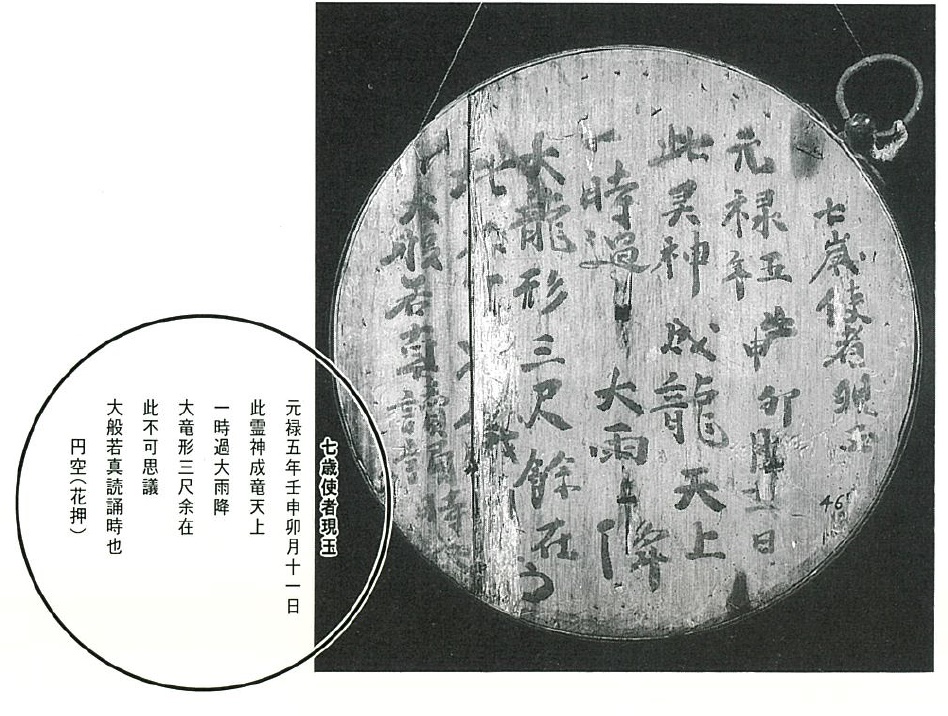 七歳使者現玉
元禄五年壬申卯月十一日
此灵神成龍天上
一時過大雨降
大龍形三尺餘在
此
大般若真讀誦時
46
七歳使者現玉
元禄五年壬申卯月十一日
此霊神成竜天上
一時過大雨降
大竜形三尺余在
此不可思議
大般若真読誦時也
円空(花押)